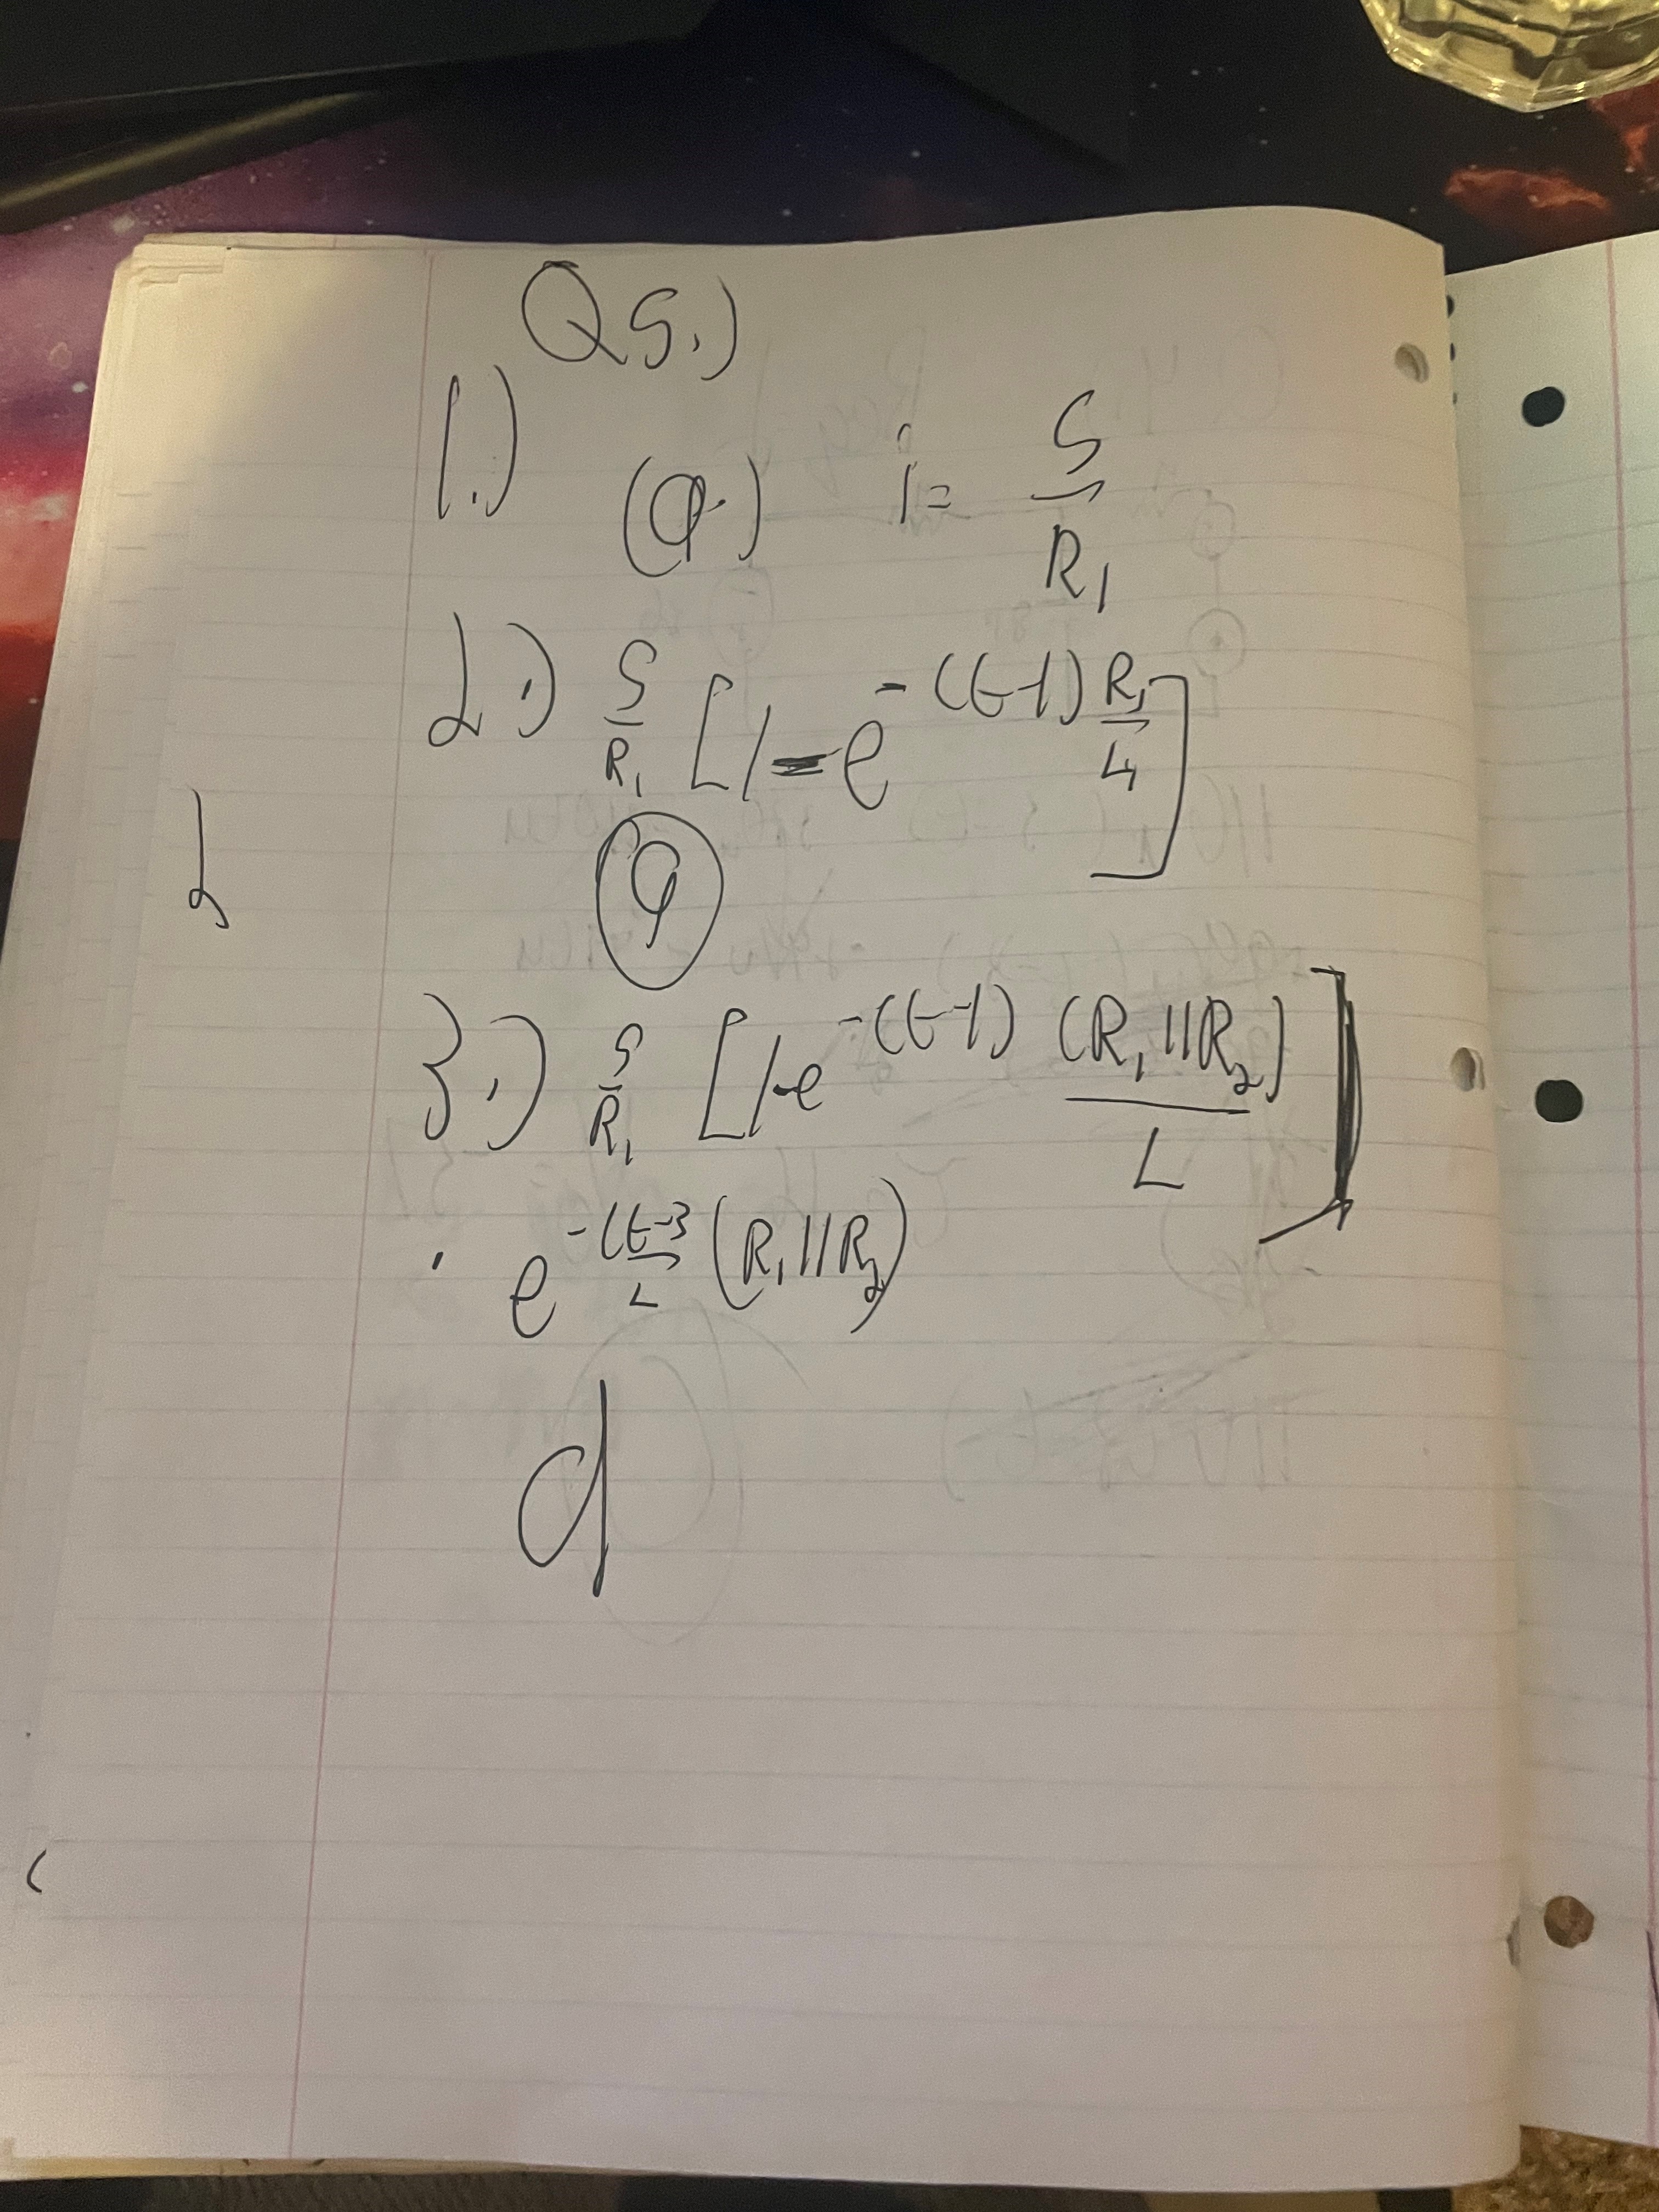 Q5.)
1.) (a) i = 5/R₁
2.) 5/R₁ [1 - e^-(t-1) R₁/4]
9
3.) 5/R₁ [1-e^-(t-1) (R₁||R₂)/L]
· e^-(t-3/L (R₁||R₂)
d